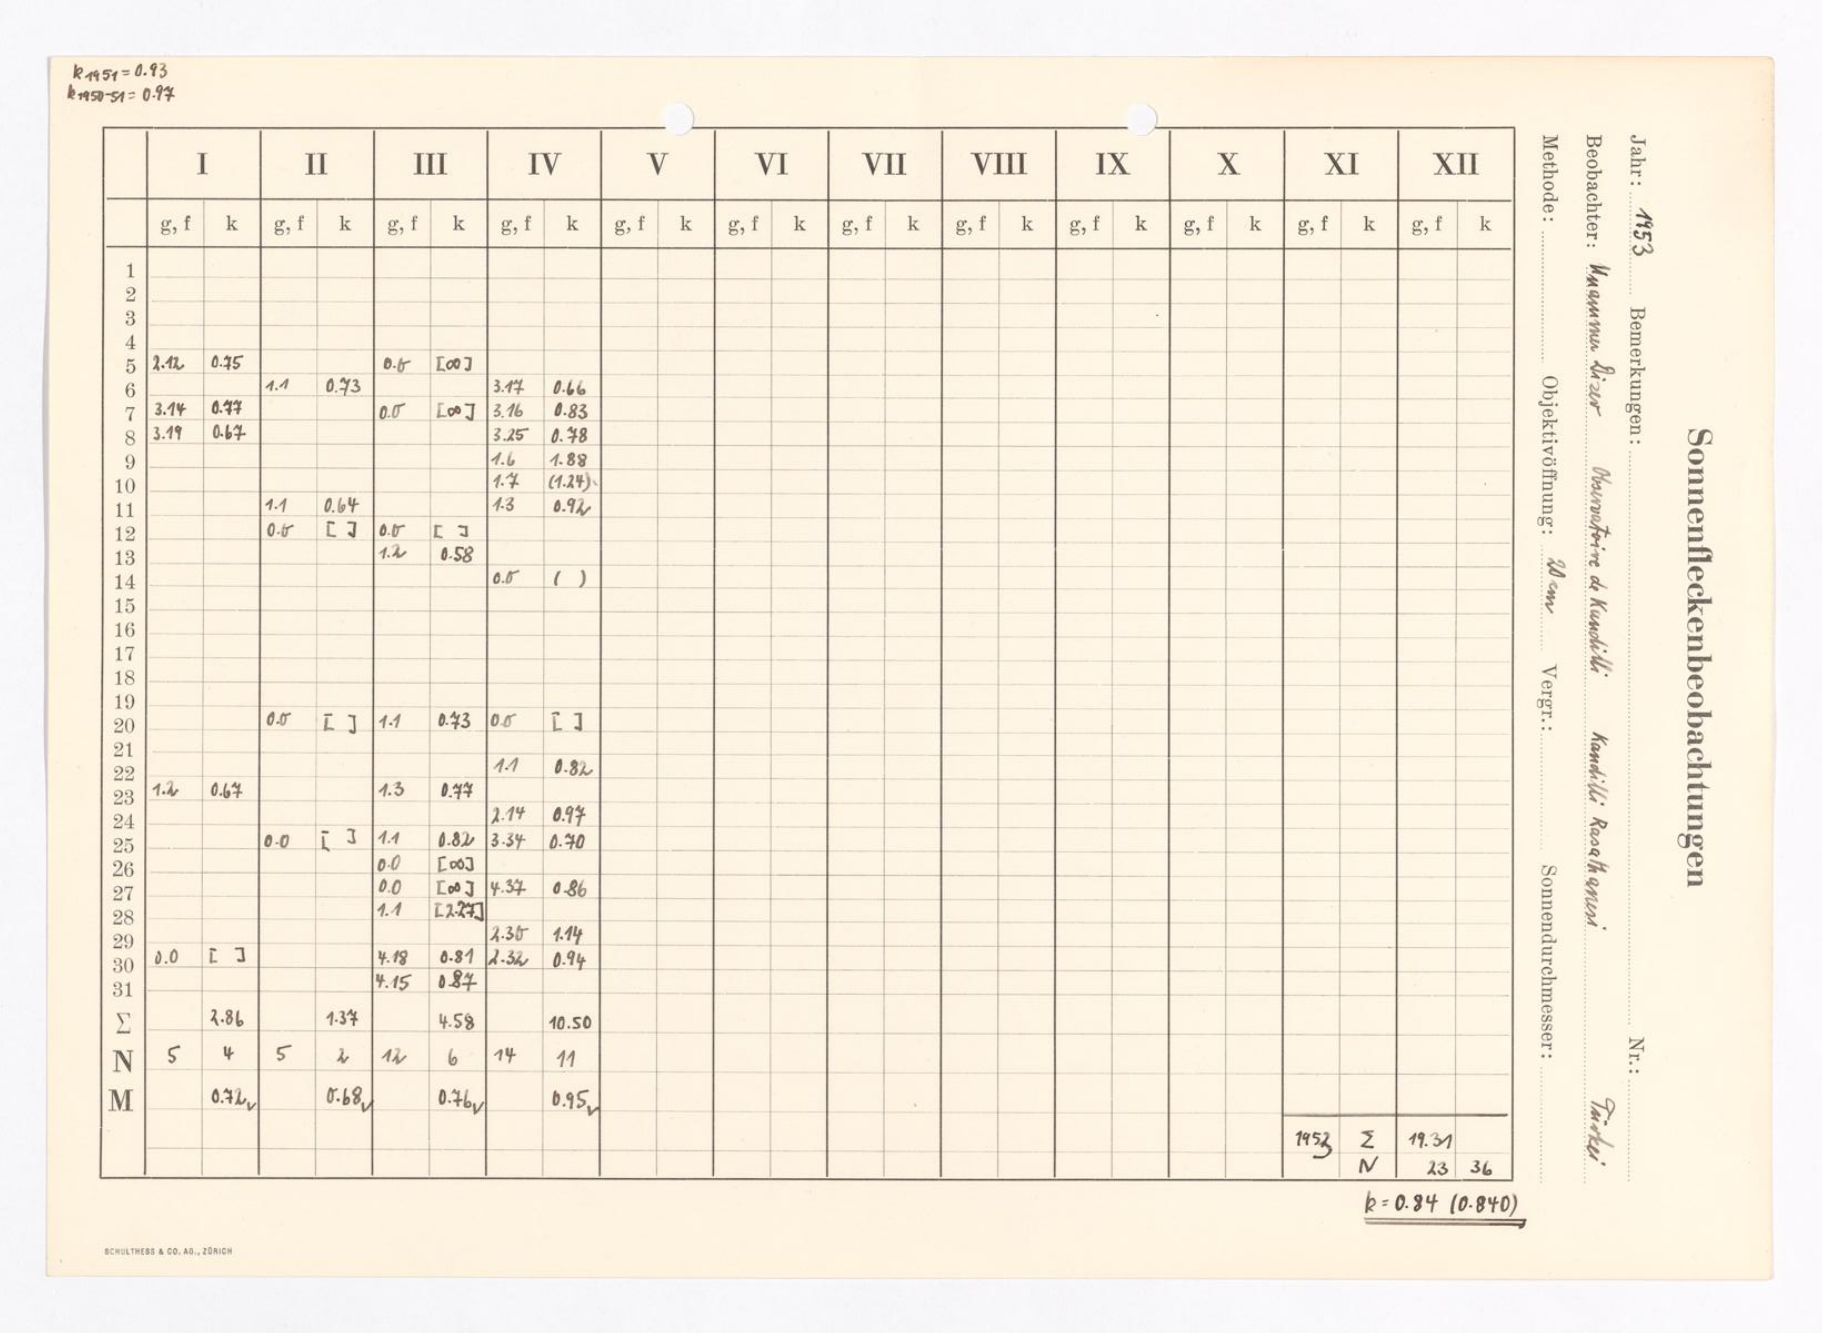 k1951 = 0.93
k1950-51 = 0.97
Sonnenfleckenbeobachtungen
Jahr: 1953 Bemerkungen: Nr.:
Beobachter: Muammer Dizer Observatoire de Kandilli Kandilli Rasathanesi Türkei
Methode: Objektivöffnung: 20 cm Vergr.: Sonnendurchmesser:
I II III IV V VI VII VIII IX X XI XII
g, f k g, f k g, f k g, f k g, f k g, f k g, f k g, f k g, f k g, f k g, f k g, f k
1
2
3
4
5 2.12 0.75 0.0 [∞]
6 1.1 0.73 3.17 0.66
7 3.14 0.77 0.0 [∞] 3.16 0.83
8 3.19 0.67 3.25 0.78
9 1.6 1.88
10 1.7 (1.24)
11 1.1 0.64 1.3 0.92
12 0.0 [ ] 0.0 [ ]
13 1.2 0.58
14 0.0 ( )
15
16
17
18
19
20 0.0 [ ] 1.1 0.73 0.0 [ ]
21
22 1.1 0.82
23 1.2 0.67 1.3 0.77
24 2.14 0.97
25 0.0 [ ] 1.1 0.82 3.34 0.70
26 0.0 [∞]
27 0.0 [∞] 4.37 0.86
28 1.1 [2.27]
29 2.30 1.14
30 0.0 [ ] 4.18 0.81 2.32 0.94
31 4.15 0.87
Σ 2.86 1.37 4.58 10.50
N 5 4 5 2 12 6 14 11
M 0.72 0.68 0.76 0.95
1953 Σ 19.31
N 23 36
k = 0.84 (0.840)
SCHULTHESS & CO. AG., ZÜRICH